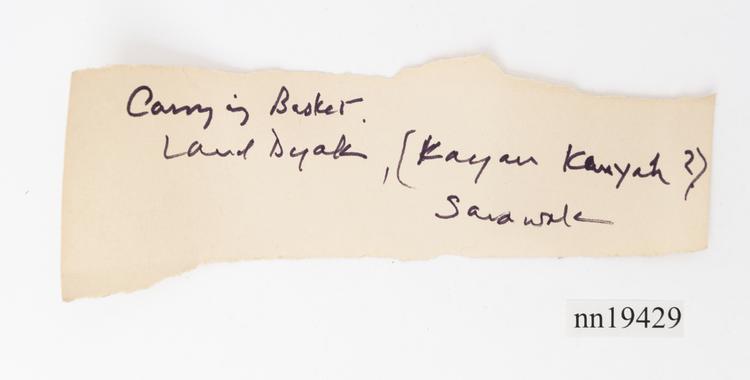 Carrying Basket.
Land Dyak, (Kayan Kanyah?)
Sarawak
nn19429